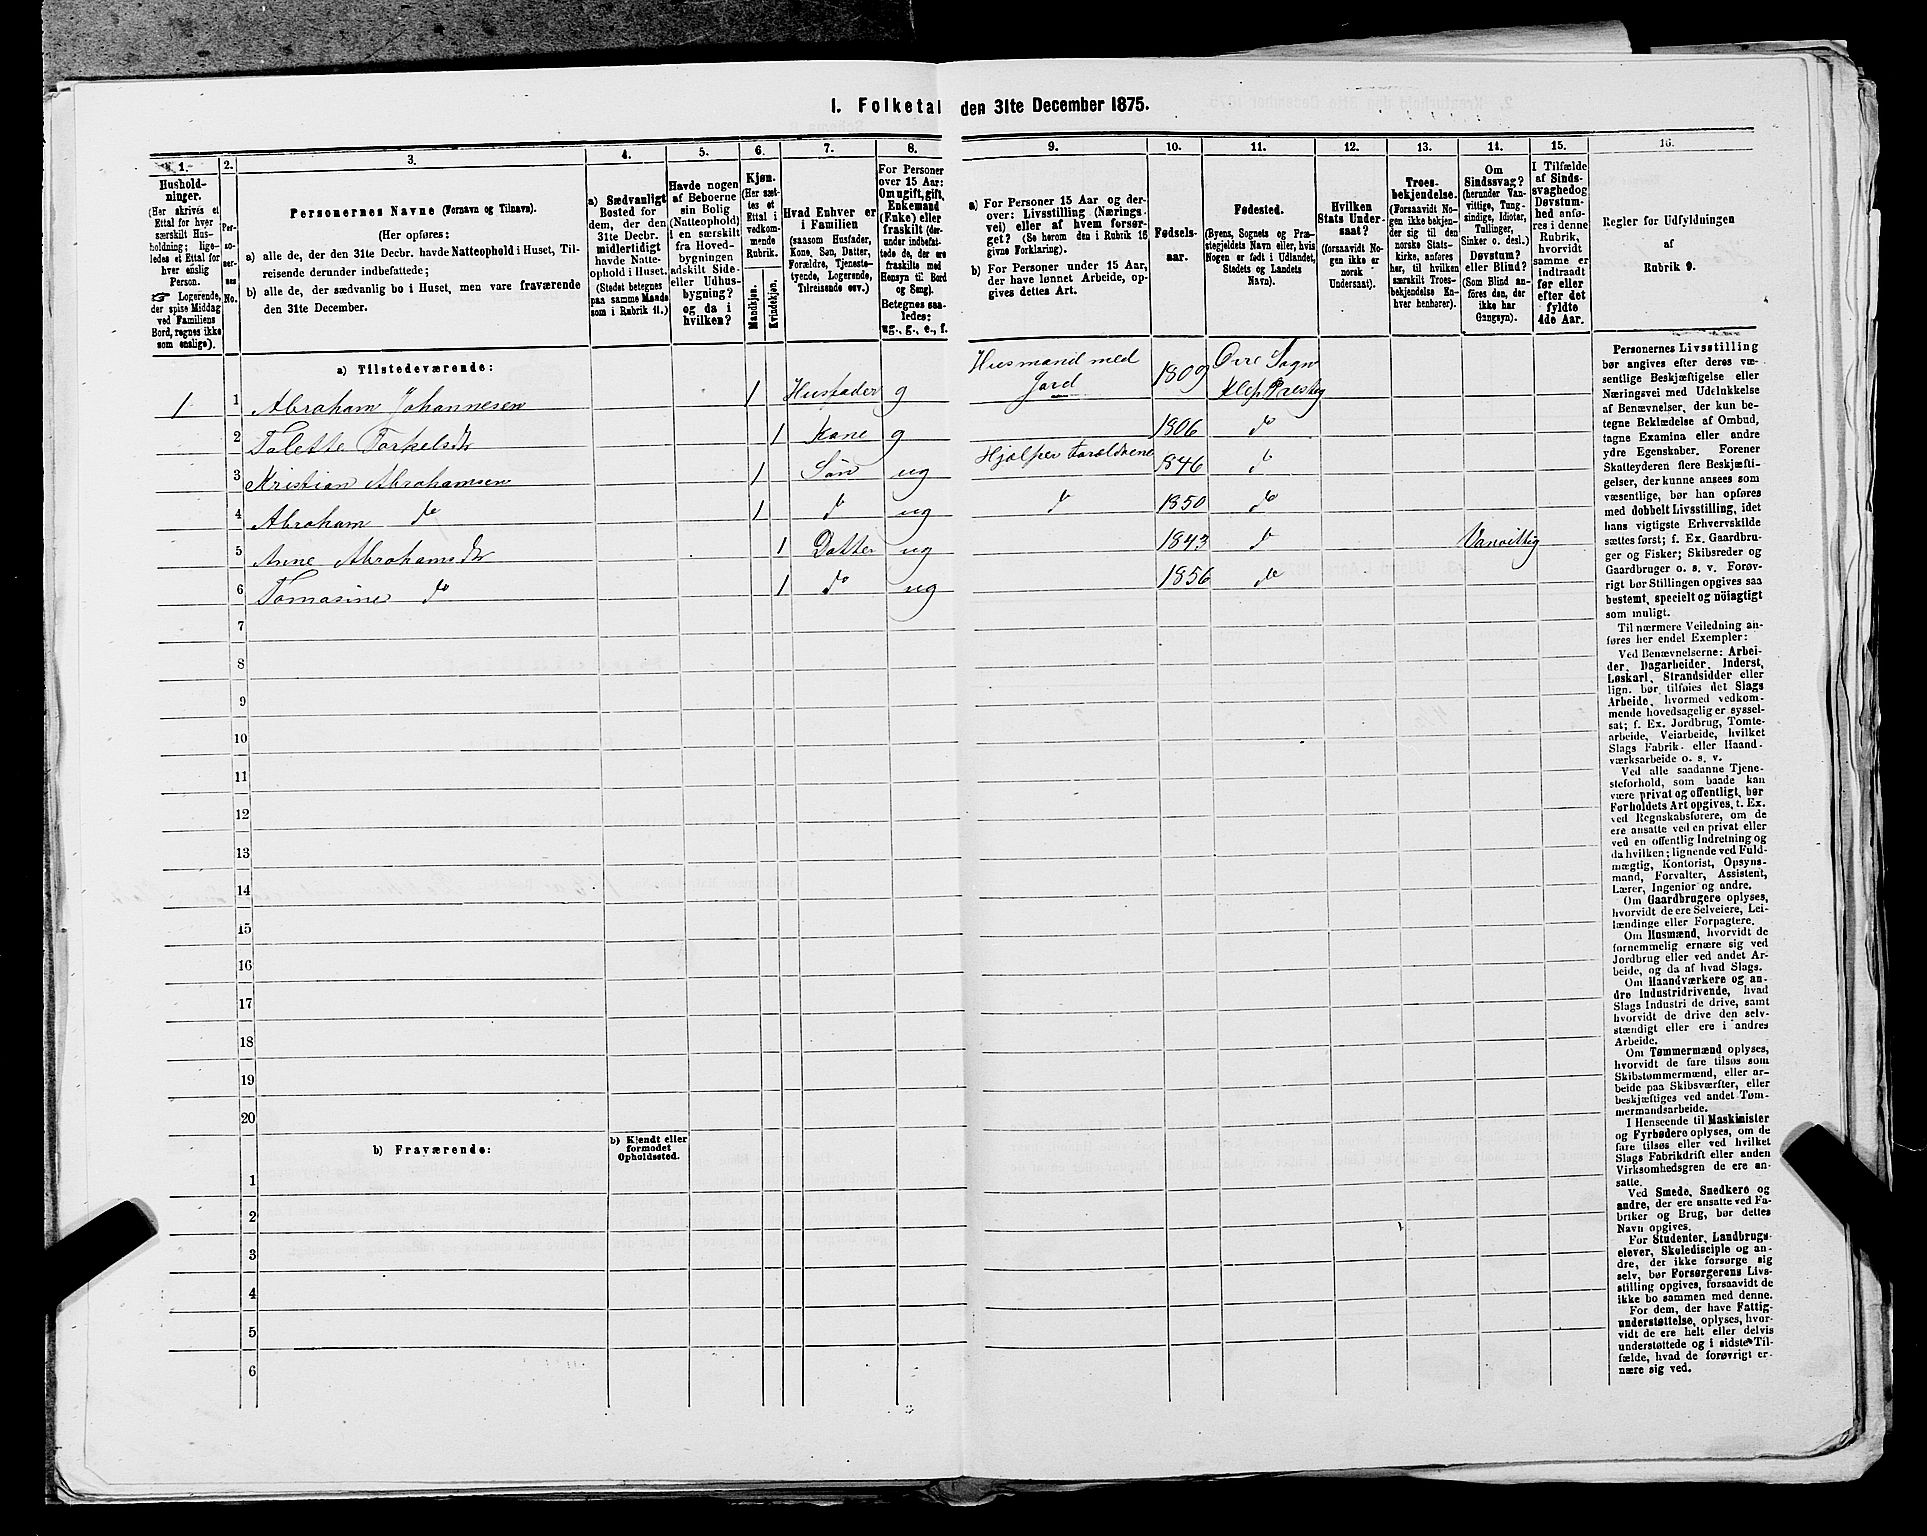 I. Folketal den 31te December 1875.
1.
2.
3.
4.
5.
6.
7.
8.
9.
10.
11.
12.
13.
14.
15.
16.
Hushold-
ninger.
(Her skrives et
Ettal for hver
særskilt Hus-
holdning; lige-
ledes et Ettal for
hver enslig
Person.
☞ Logerende,
der spise Middag
ved Familiens
Bord, regnes ikke
som enslige).
Per-
so-
ner-
nes
No.
Personernes Navne (Fornavn og Tilnavn).
(Her opføres:
a) alle de, der den 31te Decbr. havde Natteophold i Huset, Til-
reisende derunder indbefattede;
b) alle de, der sædvanlig bo i Huset, men vare fraværende
den 31te December.
a) Sædvanligt
Bosted for
dem, der den
31te Decbr.
midlertidigt
havde Natte-
ophold i Huset.
(Stedet betegnes
paa samme Maade
som i Rubrik 11.)
Havde nogen
af Beboerne
sin Bolig
(Natteophold)
i en særskilt
fra Hoved-
bygningen
adskilt Side-
eller Udhus-
bygning?
og da i
hvilken?
Kjøn.
(Her sæt-
tes et
Ettal i
vedkom-
mende
Rubrik.
Mandkjøn.
Kvindekjøn.
Hvad Enhver er
i Familien
(saasom Husfader,
Kone, Søn, Datter,
Forældre, Tjeneste-
tyende, Logerende,
Tilreisende osv.)
For Personer
over 15 Aar:
Om ugift, gift,
Enkemand
(Enke) eller
fraskilt (der-
under indbefat-
tede de, der ere
fraskilte med
Hensyn til Bord
og Seng).
Betegnes saa-
ledes:
ug., g., e., f.
a) For Personer 15 Aar og der-
over: Livsstilling (Nærings-
vei) eller af hvem forsør-
get? (Se herom den i Rubrik 16
givne Forklaring).
b) For Personer under 15 Aar,
der have lønnet Arbeide, op-
gives dettes Art.
Fødsels-
aar.
Fødested.
(Byens, Sognets og Præ-
stegjeldets Navn eller, hvis
Nogen er født i Udlandet,
Stedets og Landets
Navn).
Hvilken
Stats Under-
saat?
(forsaavidt No-
gen ikke er
norsk
Undersaat).
Troes-
bekjendelse.
(Forsaavidt No-
gen ikke bekjen-
der sig til den
norske Stats-
kirke, anføres
her, til hvilken
særskilt Troes-
bekjendelse En-
hver henhører).
Om
Sindssvag?
(herunder Van-
vittige, Tung-
sindige, Idioter,
Tullinger,
Sinker o. desl.)
Døvstum?
eller Blind?
(Som Blind an-
føres den, der
ikke har
Gangsyn).
I Tilfælde
af Sinds-
svaghed og
Døvstum-
hed anfø-
res i denne
Rubrik,
hvorvidt
samme er
indtraadt
før eller
efter det
fyldte
4de Aar.
Regler for Udfyldningen
af
Rubrik 9.
a) Tilstedeværende:
1 1 Abraham Johannesen 1 Husfader g Husmand med Jord 1809 Orre Sogn Klep Præstg
2 Tolette Torkelsdr 1 Kone g 1806 do
3 Kristian Abrahamsen 1 Søn ug Hjælper Forældrene 1846 do
4 Abraham do 1 do ug do 1850 do
5 Anne Abrahamsdr 1 Datter ug 1843 do Vanvittig
6 Tomasine do 1 do ug 1856 do
7
8
9
10
11
12
13
14
15
16
17
18
19
20
b) Fraværende:
b) Kjendt eller
formodet
Opholdssted.
1
2
3
4
5
6
Personernes Livsstilling
bør angives efter deres væ-
sentlige Beskjæftigelse eller
Næringsvei med Udelukkelse
af Benævnelser, der kun be-
tegne Beklædelse af Ombud,
tagne Examina eller andre
ydre Egenskaber. Forener
Skatteyderen flere Beskjæfti-
gelser, der kunne ansees som
væsentlige, bør han opføres
med dobbelt Livsstilling, idet
hans vigtigste Erhvervskilde
sættes først; f. Ex. Gaardbru-
ger og Fisker; Skibsreder og
Gaardbruger o. s. v. Forøv-
rigt bør Stillingen opgives saa
bestemt, specielt og nöiagtigt
som muligt.
Til nærmere Veiledning an-
føres her endel Exempler:
Ved Benævnelserne: Arbei-
der, Dagarbeider, Inderst,
Løskarl, Strandsidder eller
lign. bør tilføies det Slags
Arbeide, hvormed vedkom-
mende hovedsagelig er syssel-
sat; f. Ex. Jordbrug, Tomte-
arbeide, Veiarbeide, hvilket
Slags Fabrik- eller Haand-
værksarbeide o. s. v.
Ved alle saadanne Tjene-
steforhold, som baade kan
være privat og offentligt, bør
Forholdets Art opgives, t. Ex.
ved Regnskabsførere, om de
ere ansatte ved en privat eller
ved en offentlig Indretning og
da hvilken; lignende ved Fuld-
mægtig, Kontorist, Opsyns-
mand, Forvalter, Assistent,
Lærer, Ingeniør og andre.
Om Gaardbrugere oplyses,
hvorvidt de ere Selveiere, Lei-
lændinge eller Forpagtere.
Om Husmænd, hvorvidt de
fornemmelig ernære sig ved
Jordbrug eller ved andet Ar-
beide, og da af hvad Slags.
Om Haandværkere og an-
dre Industridrivende, hvad
Slags Industri de drive, samt
hvorvidt de drive den selv-
stændigt eller ere i andres
Arbeide.
Om Tømmermænd oplyses,
hvorvidt de fare tilsøs som
Skibstømmermænd, eller ar-
beide paa Skibsværfter, eller
beskjæftiges ved andet Tøm-
mermandsarbeide.
I Henseende til Maskinister
og Fyrbødere oplyses, om de
fare tilsøs eller ved hvilket
Slags Fabrikdrift eller anden
Virksomhedsgren de ere an-
satte.
Ved Smede, Snedkere og
andre, der ere ansatte ved Fa-
briker og Brug, bør dettes
Navn opgives.
For Studenter, Landbrugs-
elever, Skoledisciple og an-
dre, der ikke forsørge sig
selv, bør Forsørgerens Livs-
stilling opgives, forsaavidt de
ikke bo sammen med denne.
For dem, der have Fattig-
understøttelse, oplyses, hvor-
vidt de ere helt eller delvis
understøttede og i sidste Til-
fælde, hvad de forøvrigt er-
nære sig ved.